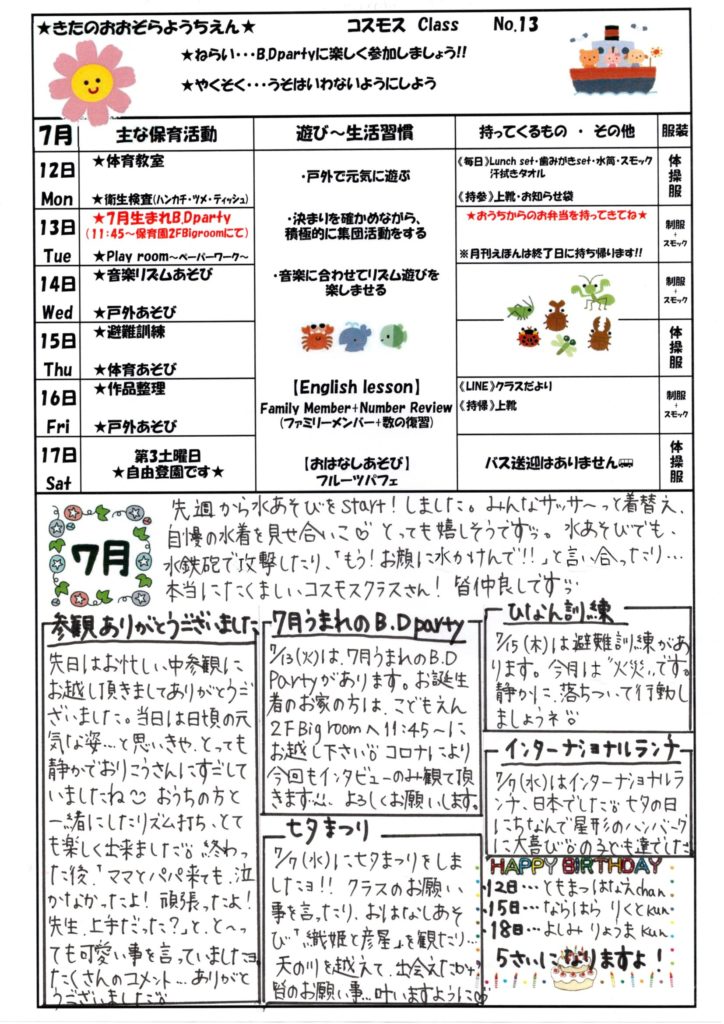 ★きたのおおぞらようちえん★ コスモス Class No.13
★ねらい・・・B.Dpartyに楽しく参加しましょう!!
★やくそく・・・うそはいわないようにしよう
7月 主な保育活動 遊び～生活習慣 持ってくるもの ・ その他 服装
12日 Mon
★体育教室
★衛生検査(ハンカチ・ツメ・ティッシュ)
《毎日》Lunch set・歯みがきset・水筒・スモック
汗拭きタオル
《持参》上靴・お知らせ袋
体操服
13日 Tue
★7月生まれB.Dparty
(11:45～保育園2FBigroomにて)
★Play room～ペーパーワーク～
★おうちからのお弁当を持ってきてね★
※月刊えほんは終了日に持ち帰ります!!
制服+スモック
14日 Wed
★音楽リズムあそび
★戸外あそび
制服+スモック
15日 Thu
★避難訓練
★体育あそび
体操服
16日 Fri
★作品整理
★戸外あそび
《LINE》クラスだより
《持帰》上靴
制服+スモック
17日 Sat
第3土曜日
★自由登園です★
バス送迎はありません
体操服
・戸外で元気に遊ぶ
・決まりを確かめながら、
積極的に集団活動をする
・音楽に合わせてリズム遊びを
楽しませる
【English lesson】
Family Member+Number Review
(ファミリーメンバー+数の復習)
【おはなしあそび】
フルーツパフェ
7月
先週から水あそびをstart!しました。みんなササッーっと着替え、
自慢の水着を見せ合いこ♡とっても嬉しそうですッ。水あそびでも、
水鉄砲で攻撃したり、「もう!お顔に水かけんで!!」と言い合ったり…
本当にたくましいコスモスクラスさん!皆仲良しですッ
参観ありがとうございました
先日はお忙しい中参観に
お越し頂きましてありがとうご
ざいました。当日は日頃の元
気な姿…と思いきや、とっても
静かでおりこうさんにすごして
いましたね☺おうちの方と
一緒にしたリズム打ち、とて
も楽しく出来ました。終わっ
た後、「ママとパパ来ても、泣
かなかったよ!頑張ったよ!
先生、上手だった?」と、と〜っ
ても可愛い事を言っていましたヨ
たくさんのコメント…ありがと
うございました。
7月うまれのB.Dparty
7/13(火)は、7月うまれのB.D
Partyがあります。お誕生
者のお家の方は、こどもえん
2FBigroomへ11:45〜に
お越し下さい。コロナにより
今回もインタビューのみ観て頂
きます…。よろしくお願いします。
七夕まつり
7/7(水)に七夕まつりをしま
したヨ!!クラスのお願い
事を言ったり、おはなしあそ
び「織姫と彦星」を観たり…
天の川を越えて、出会えたかな
皆のお願い事…叶いますように♡
ひなん訓練
7/15(木)は避難訓練があ
ります。今月は"火災"です。
静かに、落ちついて行動し
ましょうネ。
インターナショナルランチ
7/7(水)はインターナショナルラ
ンチ、日本でした。七夕の日
にちなんで星形のハンバーグ
に大喜びの子ども達でした
HAPPY BIRTHDAY
12日…ともまつはなえchan.
15日…ならはら りくとkun.
18日…よしみ りょうまkun.
5さいになりますよ!